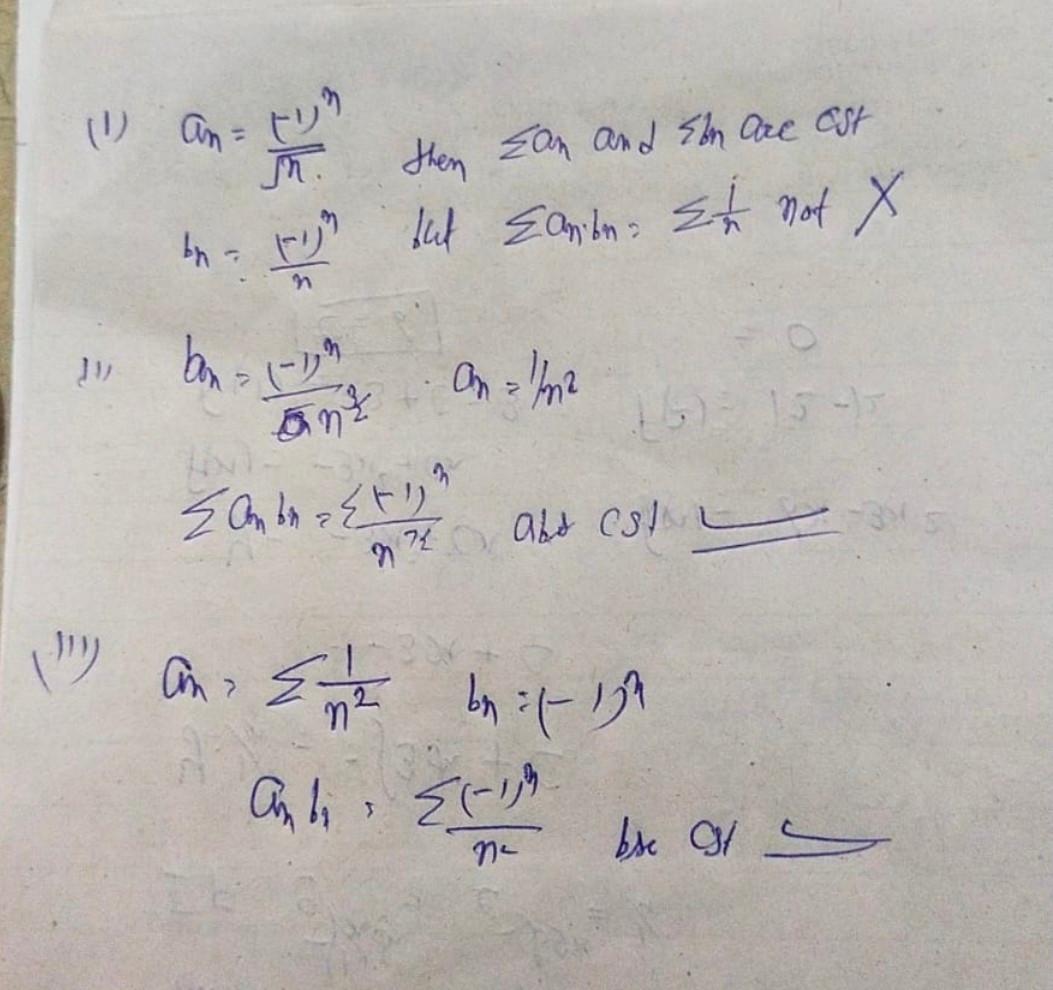 (I) an = (-1)^n/√n. then Σan and Σbn are cst
bn = (-1)^n/n but Σan·bn = Σ1/n not X
II) bn = (-1)^n/n^3/2 · an = 1/n2
Σanbn = Σ(-1)^n/n^7/2 abs cst
(III) an = Σ1/n^2 bn = (-1)^n
an bn = Σ(-1)^n/n2 cst